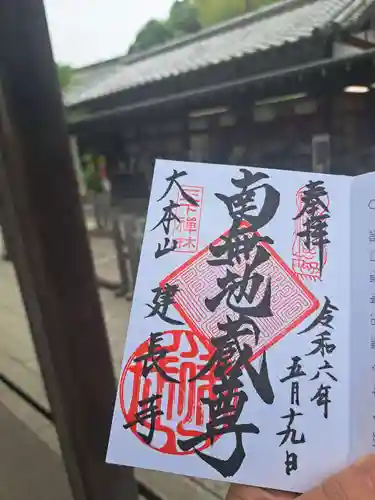 奉拝
令和六年
五月十九日
南無地蔵尊
大本山
建長寺
天下禅林